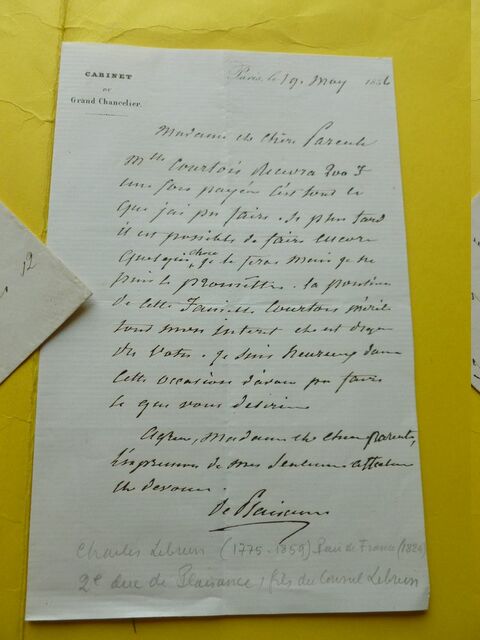 CABINET
DU
Grand Chancelier.
Paris, le 19 May 1856
Madame et chère Parente
Mlle Courtois recevra 200 F
une fois payée c'est tout ce
que j'ai pu faire. Si plus tard
il est possible de faire encore
quelque chose, je le ferai mais je ne
puis le promettre. La position
de cette famille Courtois mérite
tout mon intérêt et est digne
du votre. Je suis heureux dans
cette occasion d'avoir pu faire
ce que vous désiriez
Agréez, Madame et chère parente,
l'expression de mes sentimens affectueux
et dévoués.
de Plaisance
Charles Lebrun (1775-1859) Pair de France
2e duc de Plaisance, fils du Consul Lebrun
12